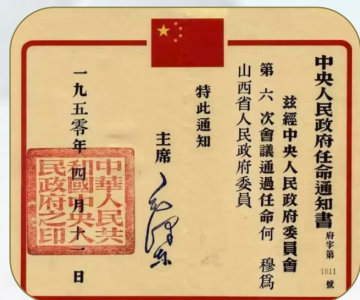 中央人民政府任命通知書 府字第 1011 號
茲經中央人民政府委員會
第六次會議通過任命何 穆爲
山西省人民政府委員
特此通知
主席 毛澤东
一九五零年四月十一日
中華人民共
和國中央人
民政府之印